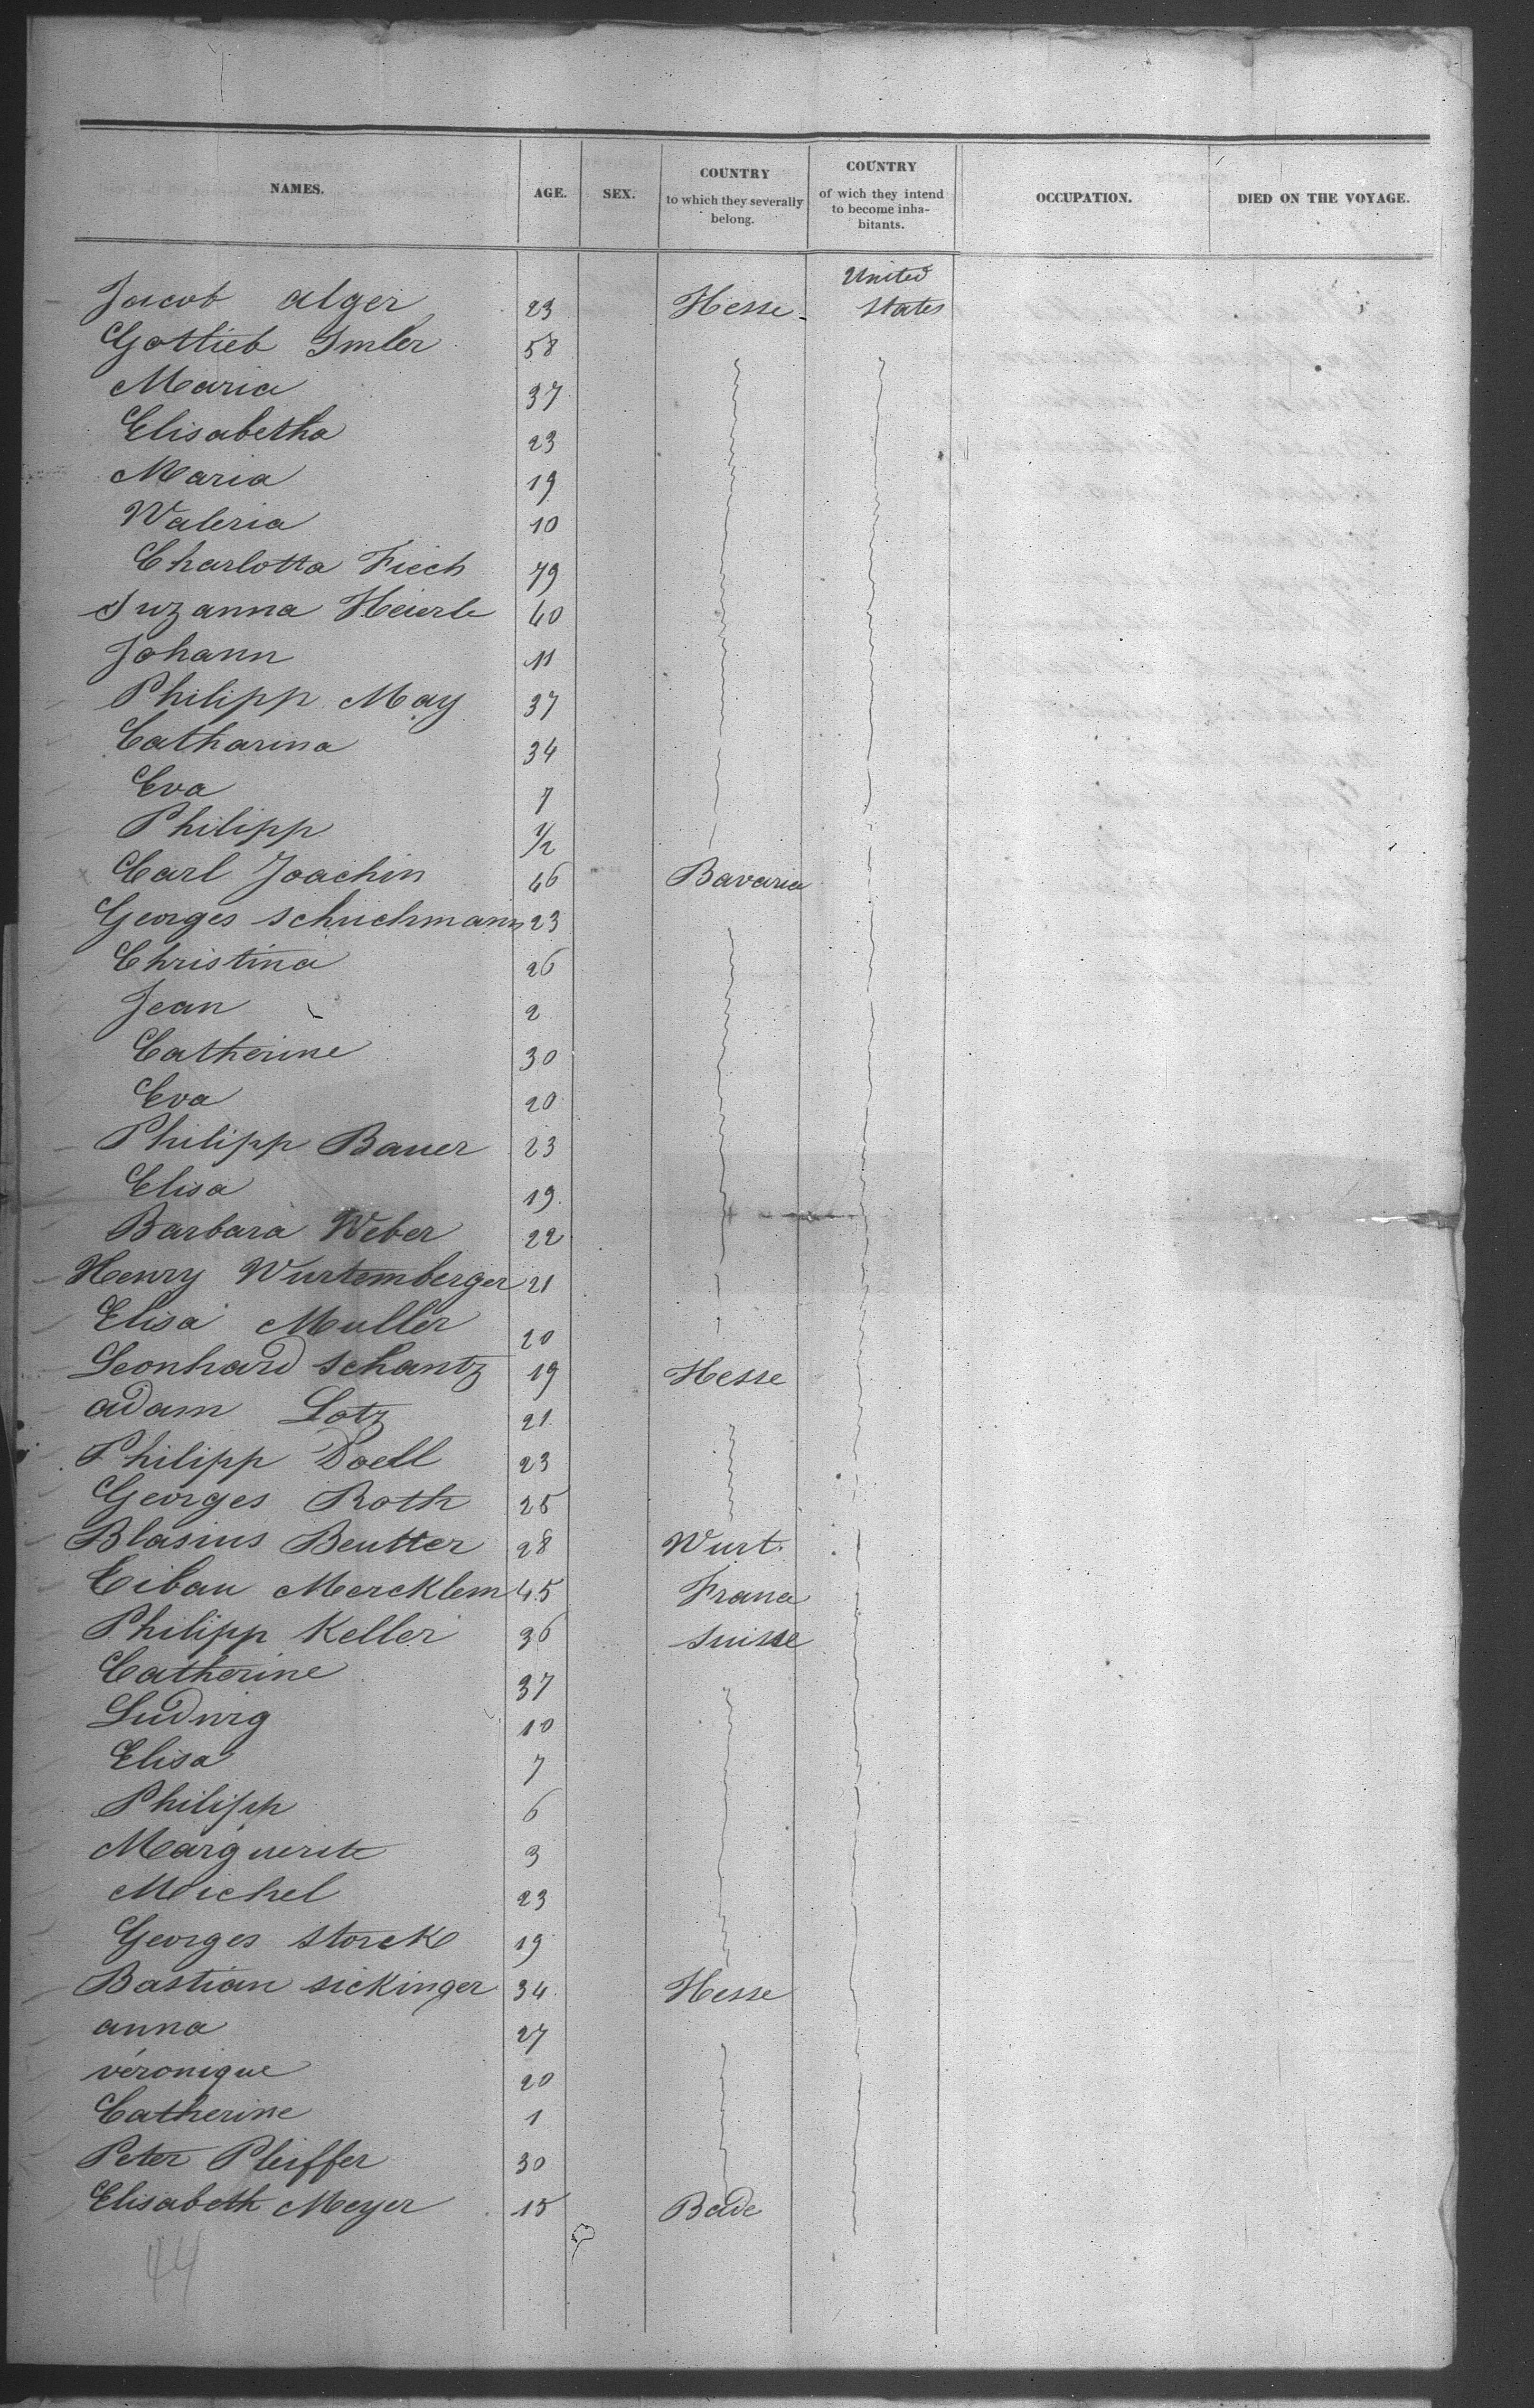 NAMES. AGE. SEX. COUNTRY to which they severally belong. COUNTRY of wich they intend to become inhabitants. OCCUPATION. DIED ON THE VOYAGE.
Jacob Alger 23 Hesse United States
Gottlieb Imler 58
Maria 37
Elisabetha 23
Maria 19
Waleria 10
Charlotta Fiech 79
Suzanna Heierle 40
Johann 11
Philipp May 37
Catharina 34
Eva 7
Philipp 1/2
Carl Joachin 46 Bavaria
Georges Schuchmann 23
Christina 26
Jean 2
Catherine 30
Eva 20
Philipp Bauer 23
Elisa 19
Barbara Weber 22
Henry Wurtemberger 21
Elisa Muller 20
Leonhard Schantz 19 Hesse
Adam Lotz 21
Philipp Doell 23
Georges Roth 25
Blasius Beutter 28 Wurt.
Mercklem 45 France
Philipp Keller 36 Suisse
Catherine 37
Ludwig 10
Elisa 7
Philipp 6
Marguerite 3
Michel 23
Georges Storck 19
Bastian Sickinger 34 Hesse
Anna 27
Véronique 20
Catherine 1
Peter Pfeiffer 30
Elisabeth Meyer 15 Bade
44